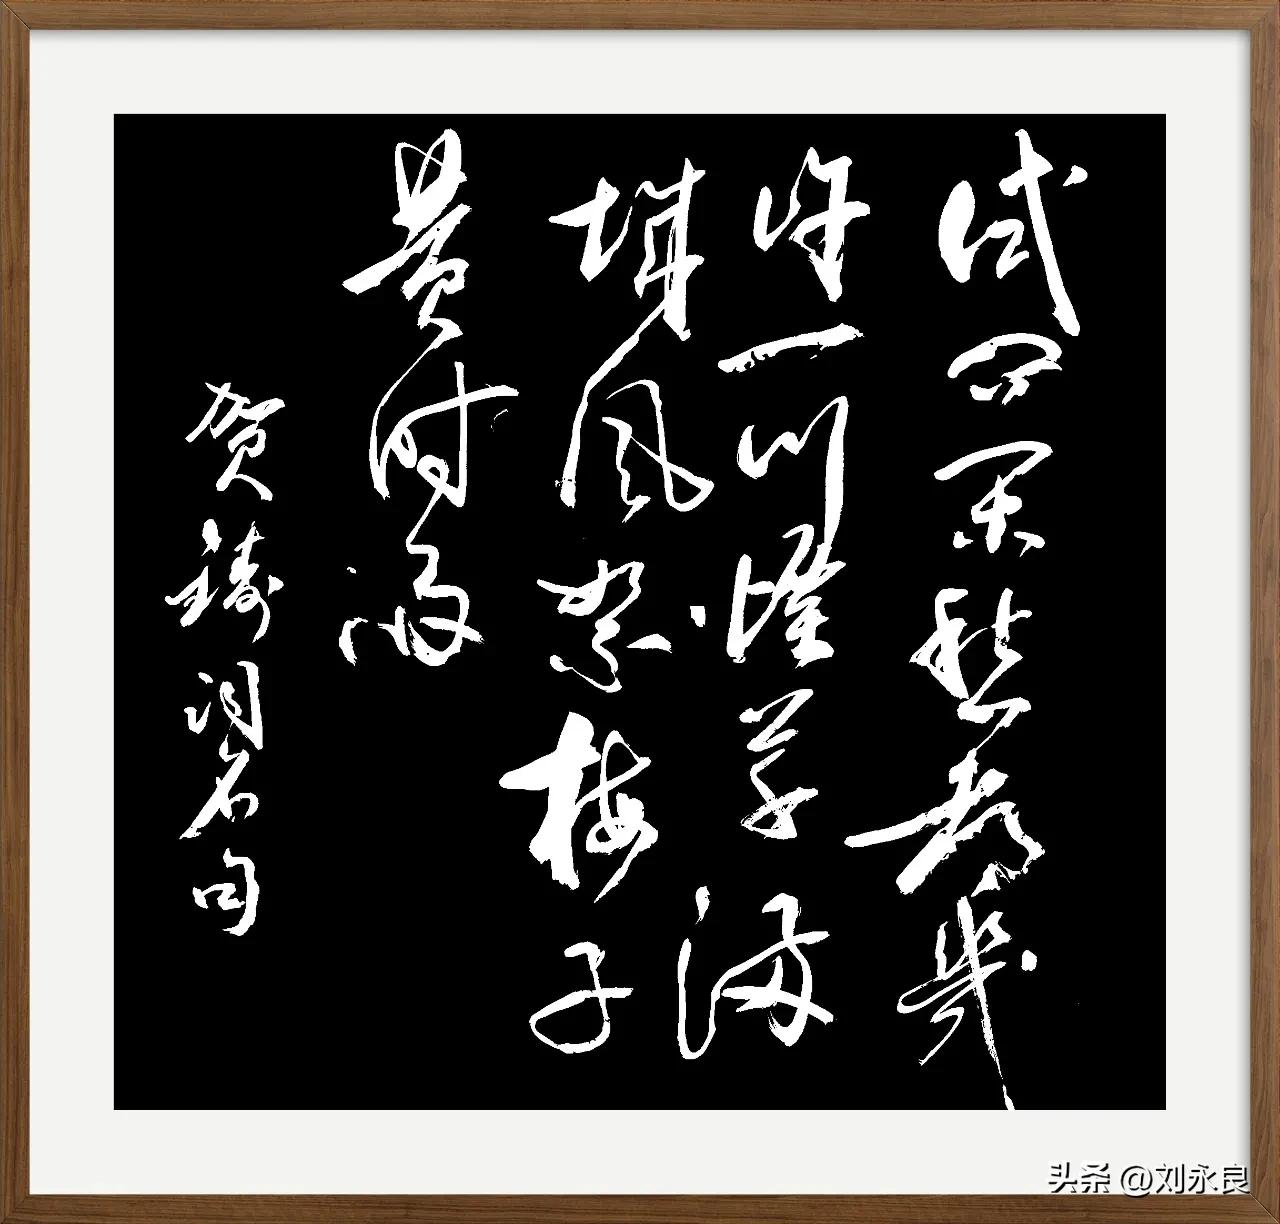 试问闲愁都幾
许一川烟草满
城风絮梅子
黄时雨
贺铸词名句
头条 @刘永良